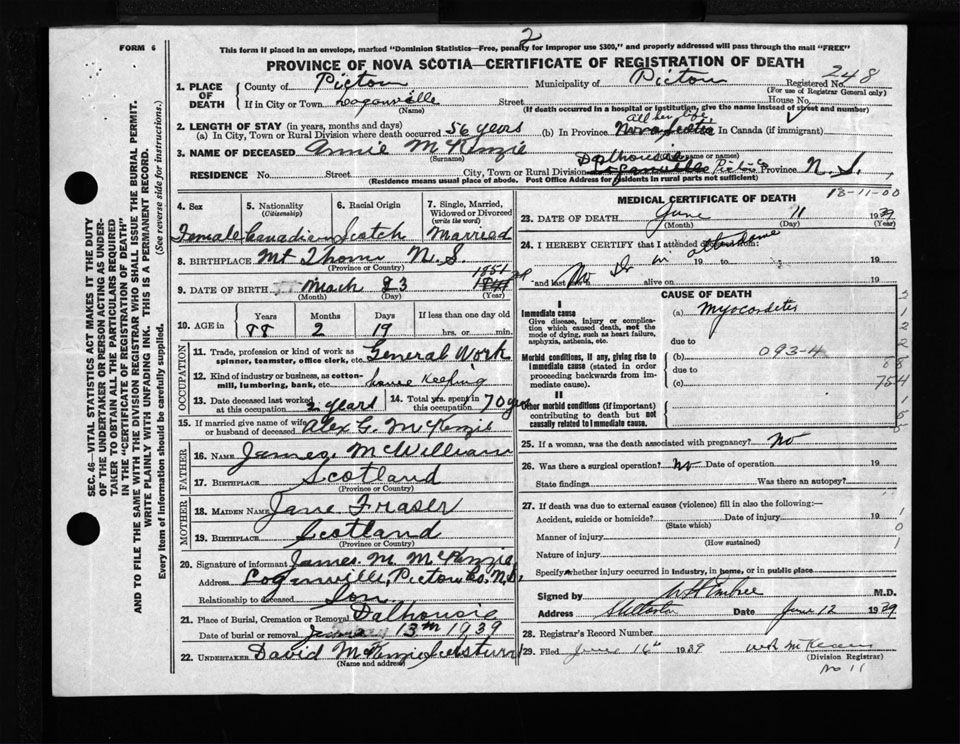 FORM 6
2
This form if placed in an envelope, marked "Dominion Statistics—Free, penalty for improper use $300," and properly addressed will pass through the mail "FREE"
PROVINCE OF NOVA SCOTIA—CERTIFICATE OF REGISTRATION OF DEATH
248
1. PLACE OF DEATH { County of Pictou Municipality of Pictou Registered No.
(For use of Registrar General only)
If in City or Town Loganville Street House No.
(Name) (If death occurred in a hospital or institution, give the name instead of street and number)
2. LENGTH OF STAY (in years, months and days) all her life
(a) In City, Town or Rural Division where death occurred 56 years (b) In Province Nova Scotia In Canada (if immigrant)
3. NAME OF DECEASED Annie McKenzie
(Surname) name or names)
Dalhousie
RESIDENCE No. Street City, Town or Rural Division Loganville Pictou Province N.S.
(Residence means usual place of abode. Post Office Address for residents in rural parts not sufficient)
13-11-00
4. Sex 5. Nationality (Citizenship) 6. Racial Origin 7. Single, Married, Widowed or Divorced (write the word)
Female Canadian Scotch Married
8. BIRTHPLACE Mt Thom N.S.
(Province or County)
1851
9. DATE OF BIRTH March 23
(Month) (Day) (Year)
10. AGE in Years Months Days If less than one day old
88 2 19 hrs. or min.
OCCUPATION
11. Trade, profession or kind of work as spinner, teamster, office clerk, etc. General Work
12. Kind of industry or business, as cotton-mill, lumbering, bank, etc. house Keeping
13. Date deceased last worked at this occupation 2 years 14. Total yrs. spent in this occupation 70 yrs
15. If married give name of wife or husband of deceased Alex G. McKenzie
FATHER
16. NAME James McWilliam
17. BIRTHPLACE Scotland
(Province or Country)
MOTHER
18. MAIDEN NAME Jane Fraser
19. BIRTHPLACE Scotland
(Province or Country)
20. Signature of informant James M McKenzie
Address Loganville, Pictou Co. N.S.
Relationship to deceased Son
21. Place of Burial, Cremation or Removal Dalhousie
Date of burial or removal June 13th 1939
22. UNDERTAKER David McKenzie
(Name and address)
MEDICAL CERTIFICATE OF DEATH
23. DATE OF DEATH June 11 1939
(Month) (Day) (Year)
24. I HEREBY CERTIFY that I attended deceased from:
No Dr in attendance
19 to 19
and last alive on 19
CAUSE OF DEATH
I
Immediate cause
Give disease, injury or complication which caused death, not the mode of dying, such as heart failure, asphyxia, asthenia, etc.
(a) Myocarditis
due to
Morbid conditions, if any, giving rise to immediate cause (stated in order proceeding backwards from immediate cause).
(b) 093-4
due to
(c)
II
Other morbid conditions (if important) contributing to death but not causally related to immediate cause.
25. If a woman, was the death associated with pregnancy? No
26. Was there a surgical operation? No Date of operation 19
State findings Was there an autopsy?
27. If death was due to external causes (violence) fill in also the following:—
Accident, suicide or homicide? Date of injury 19
(State which)
Manner of injury
(How sustained)
Nature of injury
Specify whether injury occurred in industry, in home, or in public place
Signed by WH Embree M.D.
Address Date June 12 1939
28. Registrar's Record Number
29. Filed June 16th 1939
(Division Registrar)
No 11
SEC. 46—VITAL STATISTICS ACT MAKES IT THE DUTY
OF THE UNDERTAKER OR PERSON ACTING AS UNDERTAKER TO OBTAIN ALL THE PARTICULARS REQUIRED
IN THE "CERTIFICATE OF REGISTRATION OF DEATH"
AND TO FILE THE SAME WITH THE DIVISION REGISTRAR WHO SHALL ISSUE THE BURIAL PERMIT.
WRITE PLAINLY WITH UNFADING INK. THIS IS A PERMANENT RECORD.
Every item of Information should be carefully supplied. (See reverse side for instructions.)